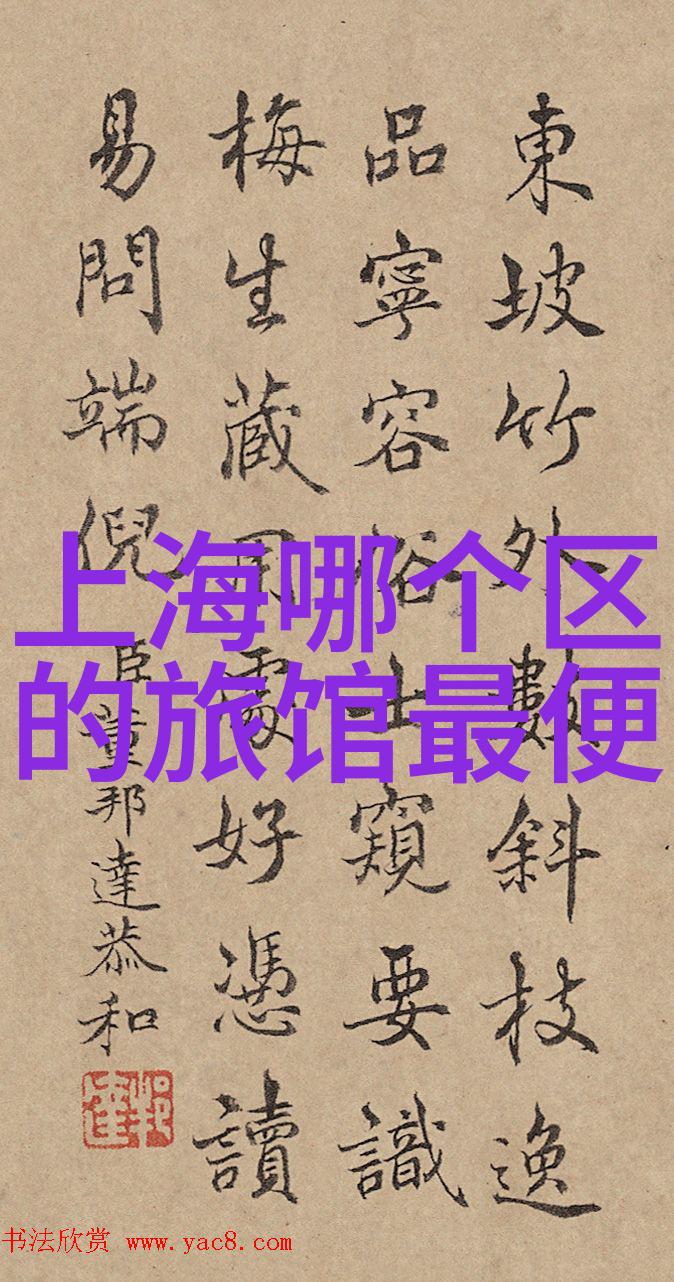 東坡竹外數斜枝逸
品寧容俗士窺要識
梅生藏用處好憑讀
易問端倪
臣董邦達恭和
邦達
上海哪个区
的旅馆最便
书法欣赏 www.yac8.com